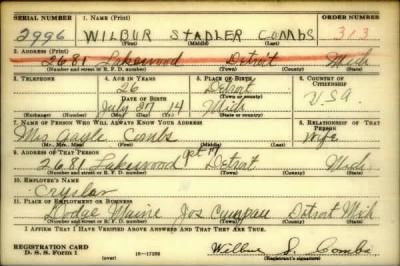 SERIAL NUMBER 1. NAME (Print) ORDER NUMBER
2996 WILBUR STADLER COMBS 313
(First) (Middle) (Last)
2. ADDRESS (Print)
2681 Lakewood Detroit Mich
(Number and street or R. F. D. number) (Town) (County) (State)
3. TELEPHONE 4. AGE IN YEARS 5. PLACE OF BIRTH 6. COUNTRY OF CITIZENSHIP
26 Detroit
DATE OF BIRTH (Town or county)
July 27 14 Mich U.S.A
(Exchange) (Number) (Mo.) (Day) (Yr.) (State or country)
7. NAME OF PERSON WHO WILL ALWAYS KNOW YOUR ADDRESS 8. RELATIONSHIP OF THAT PERSON
Mrs Gayle Combs Wife
(Mr., Mrs., Miss) (First) (Middle) (Last)
9. ADDRESS OF THAT PERSON
2681 Lakewood apt 19 Detroit Mich
(Number and street or R. F. D. number) (Town) (County) (State)
10. EMPLOYER'S NAME
Cryslar
11. PLACE OF EMPLOYMENT OR BUSINESS
Dodge Maine Jos Campau Detroit Mich
(Number and street or R. F. D. number) (Town) (County) (State)
I AFFIRM THAT I HAVE VERIFIED ABOVE ANSWERS AND THAT THEY ARE TRUE.
REGISTRATION CARD
D. S. S. Form 1 (over) 16-17105 Wilbur S. Combs
(Registrant's signature)